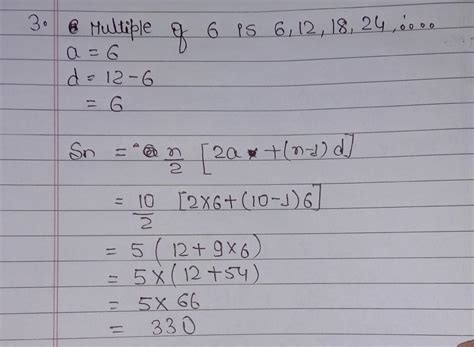 3. Multiple of 6 is 6, 12, 18, 24, ....
a = 6
d = 12 - 6
= 6
Sn = n/2 [2a + (n-1) d]
= 10/2 [2×6+(10-1)6]
= 5 (12+9×6)
= 5×(12+54)
= 5×66
= 330